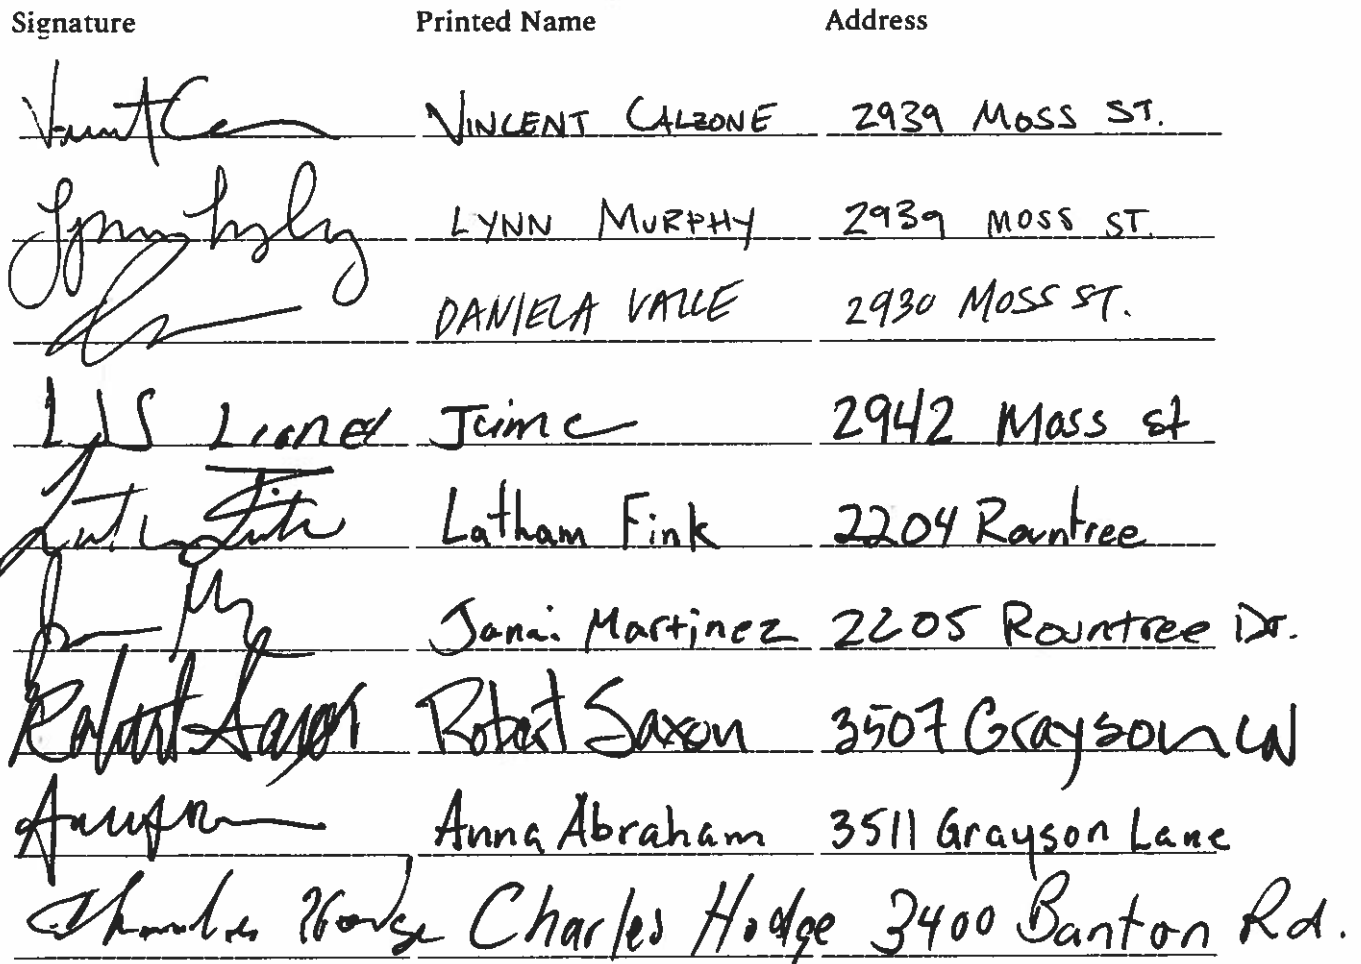 Signature Printed Name Address
VINCENT CALZONE 2939 MOSS ST.
LYNN MURPHY 2939 MOSS ST.
DANIELA VALLE 2930 MOSS ST.
Lionel Jaime 2942 Moss st
Latham Fink 2204 Rountree
Janai Martinez 2205 Rountree Dr.
Robert Saxon Robert Saxon 3507 Grayson LN
Anna Abraham 3511 Grayson Lane
Charles Hodge Charles Hodge 3400 Banton Rd.